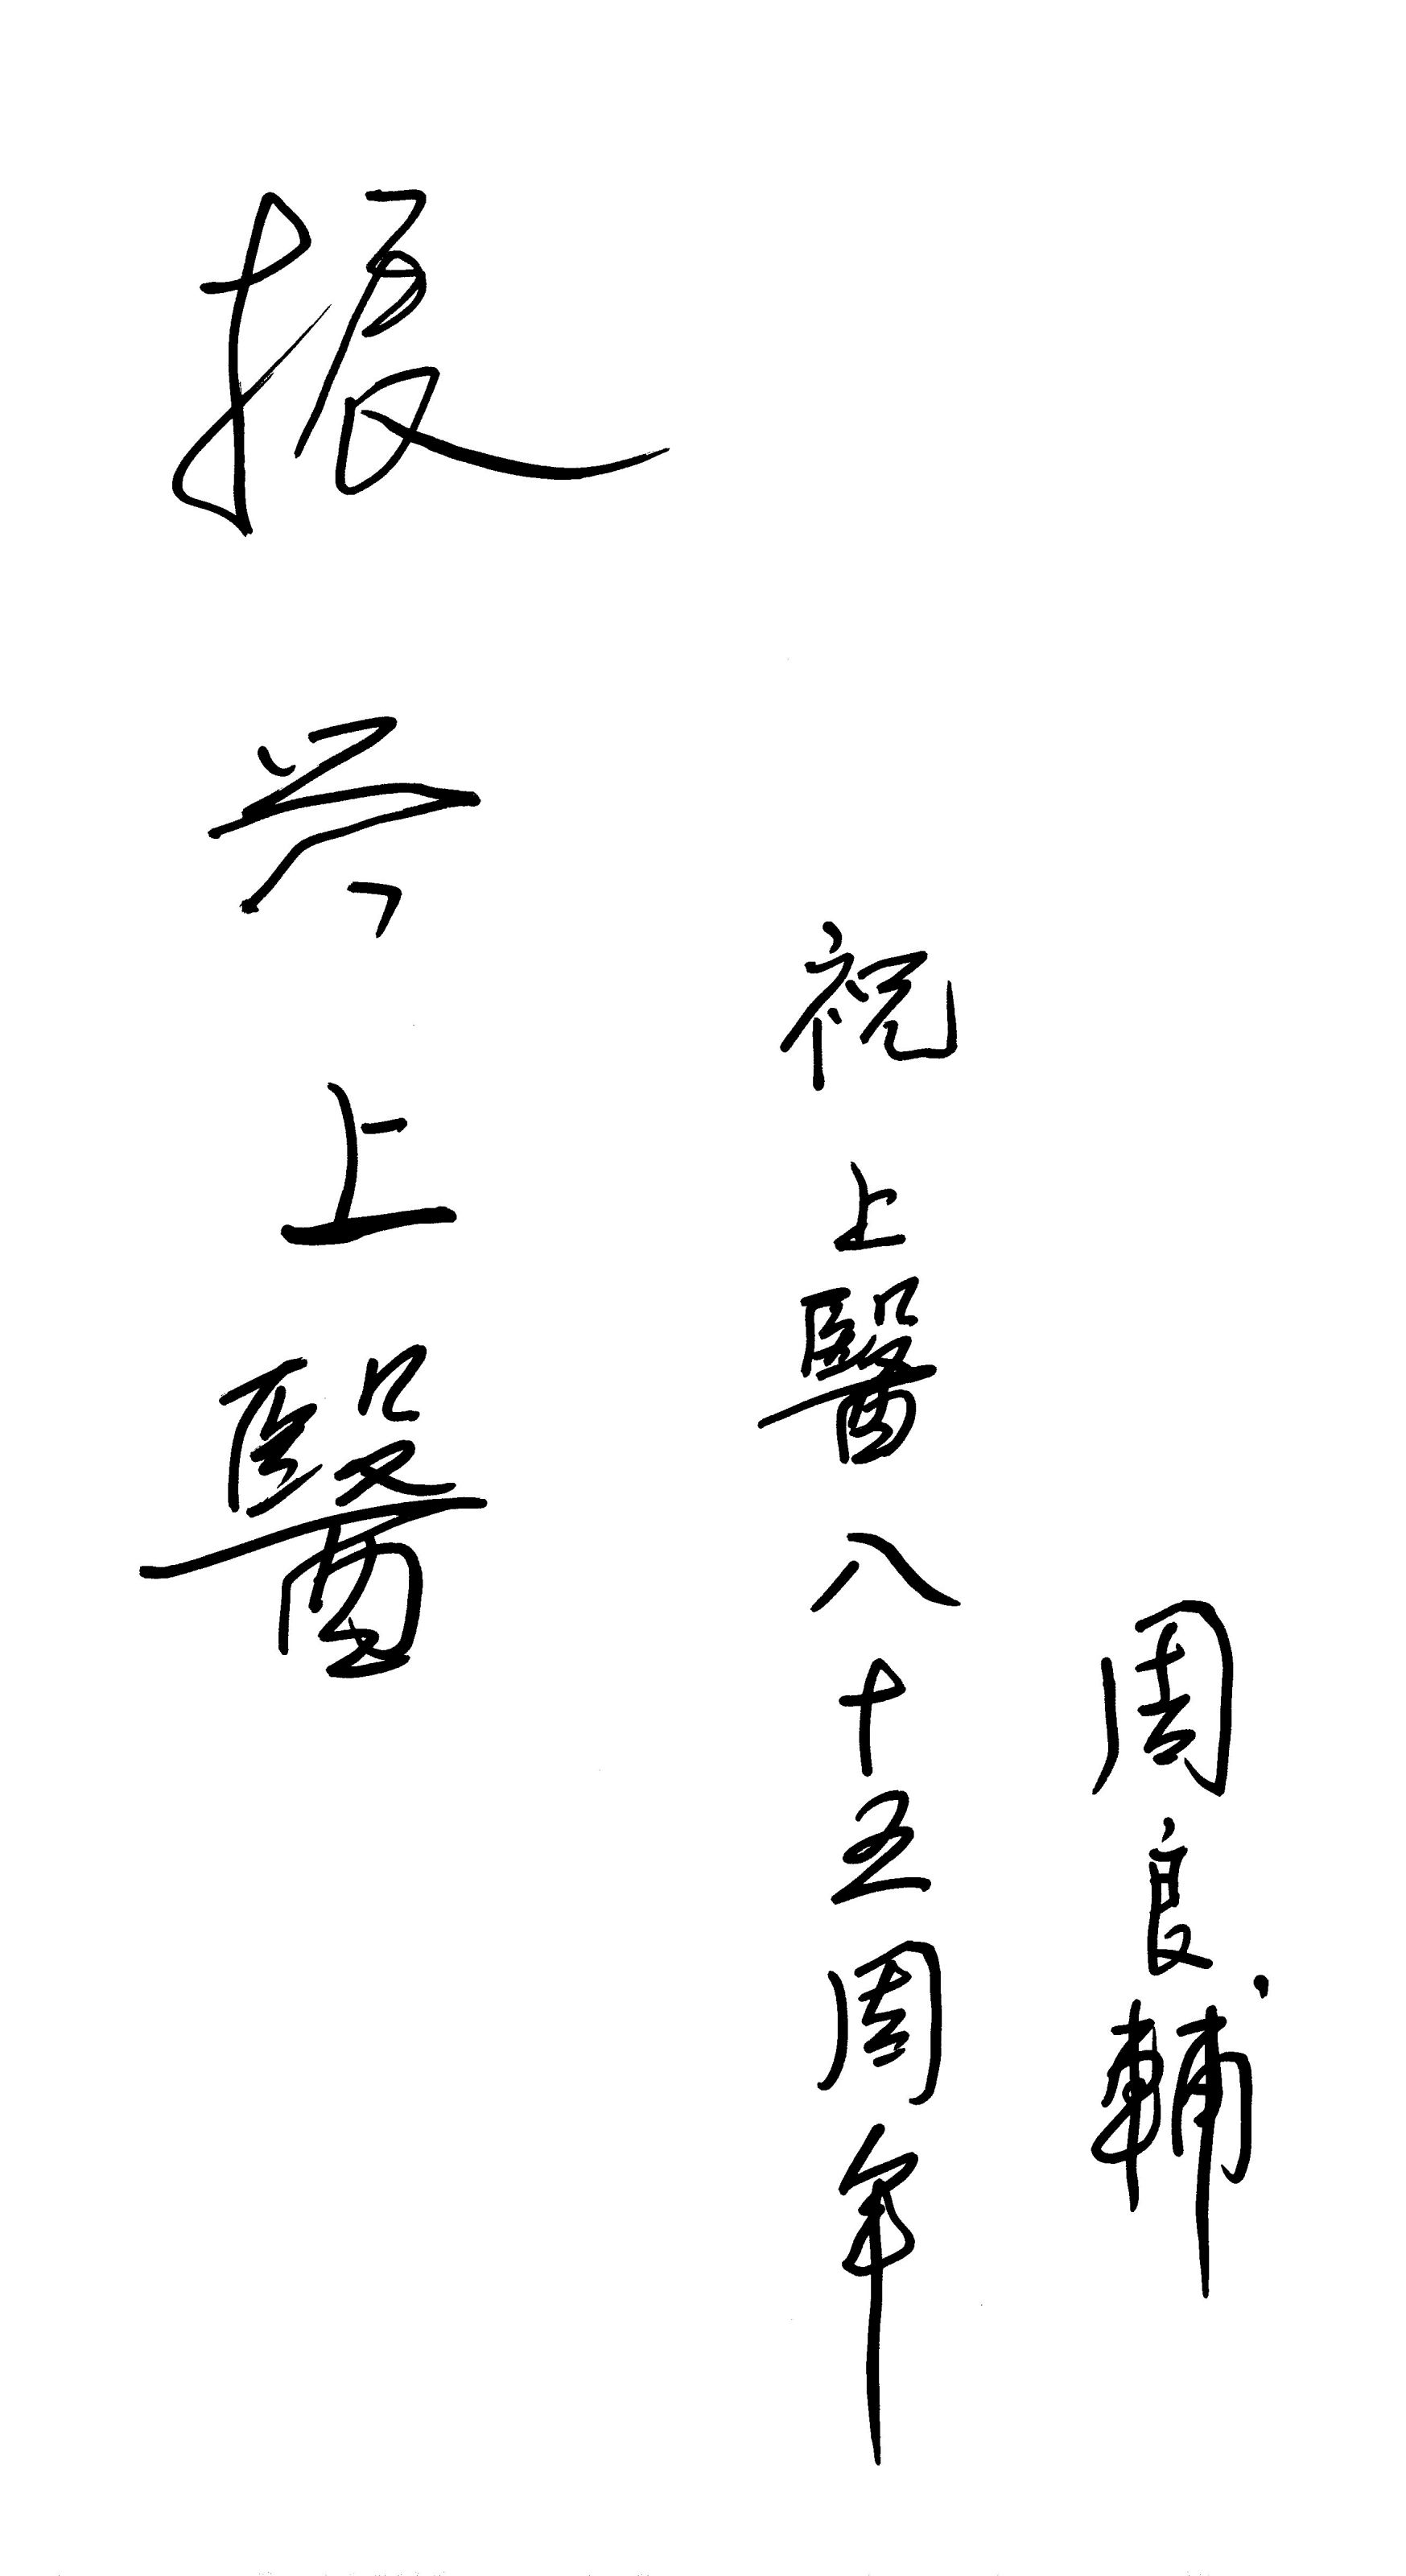 振兴上醫
祝上醫八十五周年
周良輔